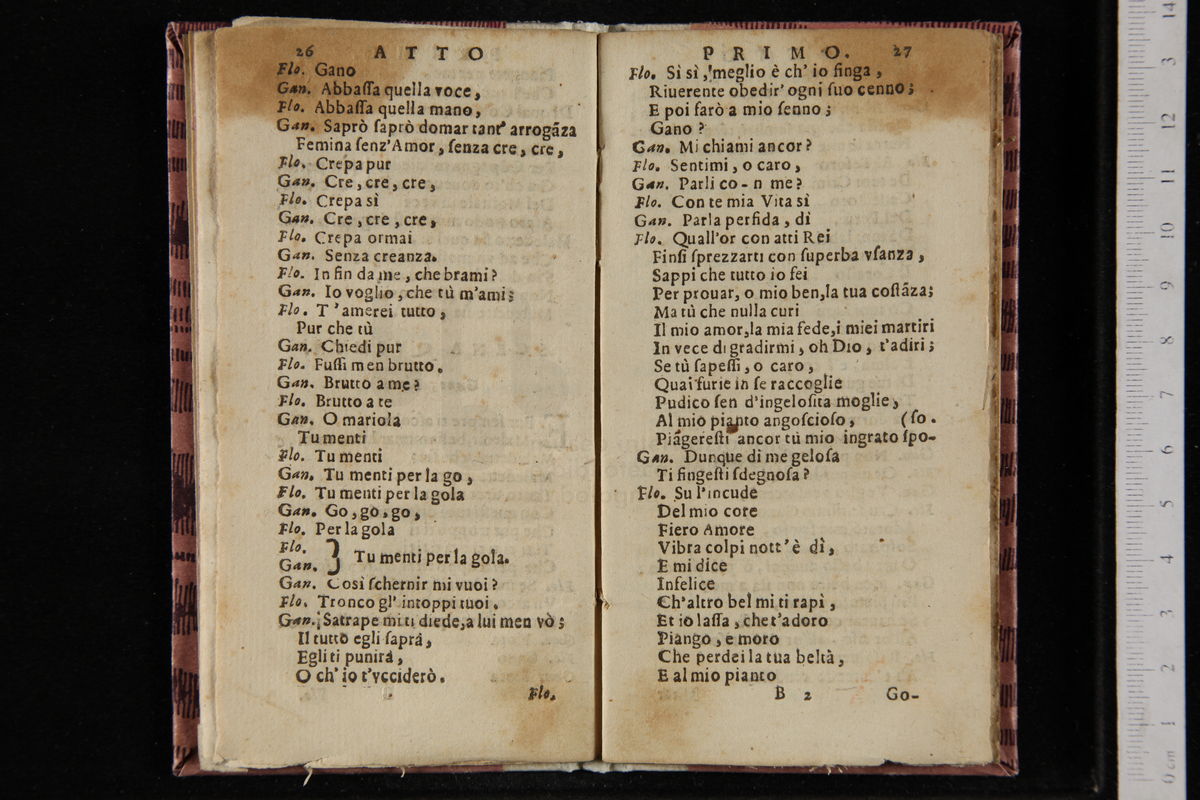 26 ATTO
Flo. Gano
Gan. Abbaſſa quella voce,
Flo. Abbaſſa quella mano,
Gan. Saprò ſaprò domar tant' arrogãza
Femina ſenz'Amor, ſenza cre, cre,
Flo. Crepa pur
Gan. Cre, cre, cre,
Flo. Crepa sì
Gan. Cre, cre, cre,
Flo. Crepa ormai
Gan. Senza creanza.
Flo. In fin da me, che brami?
Gan. Io voglio, che tù m'ami;
Flo. T'amerei tutto,
Pur che tù
Gan. Chiedi pur
Flo. Fuſſi men brutto.
Gan. Brutto a me?
Flo. Brutto a te
Gan. O mariola
Tu menti
Flo. Tu menti
Gan. Tu menti per la go,
Flo. Tu menti per la gola
Gan. Go, go, go,
Flo. Per la gola
Flo.
Gan. } Tu menti per la gola.
Gan. Così ſchernir mi vuoi?
Flo. Tronco gl' intoppi tuoi.
Gan. Satrape mi ti diede, a lui men vò;
Il tutto egli ſaprà,
Egli ti punirà,
O ch' io t'vcciderò.
Flo.
PRIMO. 27
Flo. Sì sì, meglio è ch' io finga,
Riuerente obedir' ogni ſuo cenno;
E poi farò a mio ſenno;
Gano?
Gan. Mi chiami ancor?
Flo. Sentimi, o caro,
Gan. Parli co-n me?
Flo. Con te mia Vita sì
Gan. Parla perfida, dì
Flo. Quall'or con atti Rei
Finſi ſprezzarti con ſuperba vſanza,
Sappi che tutto io fei
Per prouar, o mio ben, la tua coſtãza;
Ma tù che nulla curi
Il mio amor, la mia fede, i miei martiri
In vece di gradirmi, oh Dio, t'adiri;
Se tù ſapeſſi, o caro,
Quai furie in ſe raccoglie
Pudico ſen d'ingeloſita moglie,
Al mio pianto angoſcioſo, (ſo.
Piãgereſti ancor tù mio ingrato ſpo-
Gan. Dunque di me geloſa
Ti fingeſti ſdegnoſa?
Flo. Su l'incude
Del mio core
Fiero Amore
Vibra colpi nott' è dì,
E mi dice
Infelice
Ch'altro bel mi ti rapì,
Et io laſſa, che t'adoro
Piango, e moro
Che perdei la tua beltà,
E al mio pianto
B 2 Go-